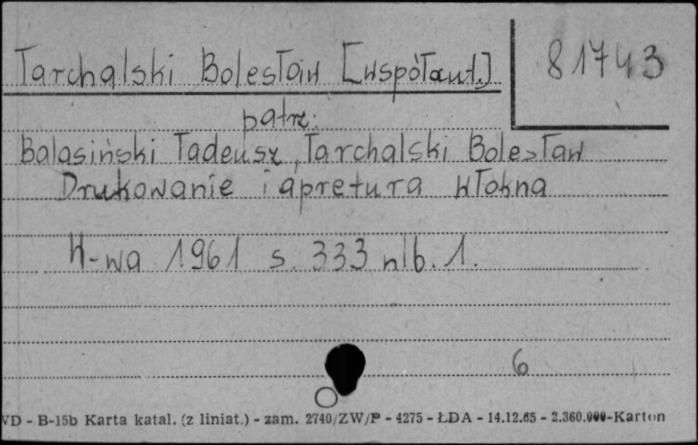 Tarchalski Bolesław [współaut.]
81743
patrz:
Balasiński Tadeusz, Tarchalski Bolesław
Drukowanie i apretura włókna
W-wa 1961 s. 333 nlb. 1.
6
VD - B-15b Karta katal. (z liniat.) - zam. 2740/ZW/P - 4275 - ŁDA - 14.12.65 - 2.360.000-Karton